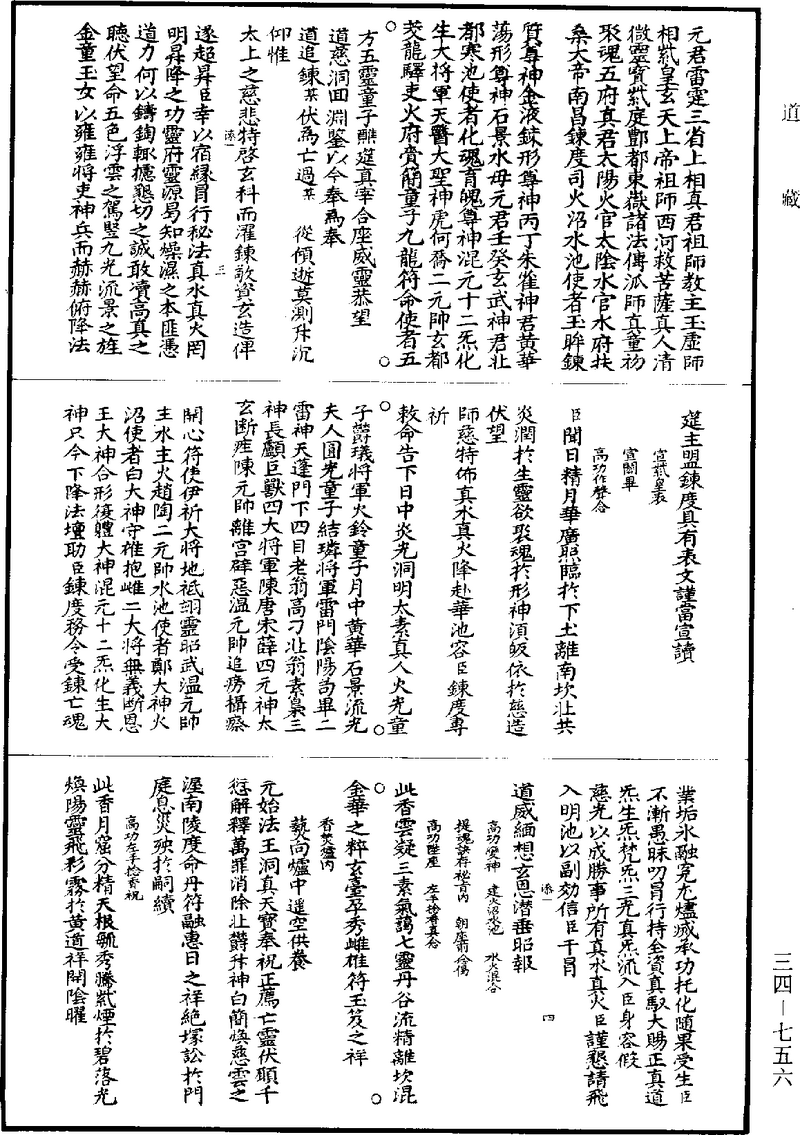 道藏
元君雷霆三省上相真君祖師教主玉虛師
相紫皇玄天上帝祖師西河救苦薩真人清
微靈寶紫庭酆都東嶽諸法傳派師真童初
聚魂五府真君太陽火官太陰水官水府扶
桑大帝南昌鍊度司火沼水池使者玉眸鍊
質尊神金液鍊形尊神丙丁朱雀神君黃華
蕩形尊神石景水母元君壬癸玄武神君北
都寒池使者化魂育魄尊神混元十二炁化
生大將軍天醫大聖神虎何喬二元帥玄都
茭龍驛吏火府賫簡童子九龍符命使者五
方五靈童子醮筵真宰合座威靈恭望
道慈洞回淵鑒以今奉為奉
道追鍊某伏為亡過某　從傾逝莫測升沉
仰惟
太上之慈悲特啓玄科而濯鍊敢資玄造俾
遂超昇臣幸以宿緣冒行秘法真水真火罔
明昇降之功靈府靈源曷知燥濕之本匪憑
道力何以鑄鉤輒攄懇切之誠敢瀆高真之
聽伏望命五色浮雲之駕豎九光流景之旌
金童玉女以雍雍將吏神兵而赫赫俯降法
筵主盟鍊度具有表文謹當宣讀
宣紫皇表
宣關畢
高功作聲念
臣聞日精月華廣照臨於下土離南坎北共
炎潤於生靈欲聚魂於形神須皈依於慈造
伏望
師慈特佈真水真火降赴華池容臣鍊度專
祈
敕命告下日中炎光洞明太素真人火光童
子欝㼁將軍火鈴童子月中黃華石景流光
夫人圓光童子結璘將軍雷門陰陽苟畢二
雷神天蓬門下四目老翁高刁北翁素梟三
神長顱巨獸四大將軍陳唐宋薛四元神太
玄斷痓陳元帥離宮辟惡溫元帥追癆攝瘵
開心符使伊祈大將地祗翊靈昭武溫元帥
主水主火趙陶二元帥水池使者鄭大神火
沼使者白大神守雄抱雌二大將無義斷恩
王大神合形復體大神混元十二炁化生大
神只今下降法壇助臣鍊度務令受鍊亡魂
業垢氷融寃尤燼滅承功托化隨果受生臣
不漸愚昧叨冒行持全資真馭大賜正真道
炁生炁梵炁三光真炁流入臣身容假
慈光以成勝事所有真水真火臣謹懇請飛
入明池以副効信臣干冒
道威緬想玄恩潛垂昭報
高功變神　建火沼水池　水火混合
提魂訣存祕旨內　朝原蕳念偈
高功陞座　左手捻香真念
此香雲凝三素氣藹七靈丹谷流精離坎混
金華之粹玄臺孕秀雌雄符玉笈之祥
香焚爐內
爇向爐中遥空供養
元始法王洞真天寶奉祝正薦亡靈伏願千
愆解釋萬罪消除北欝升神白簡煥慈雲之
渥南陵度命丹符融惠日之祥絶塚訟於門
庭息災殃於嗣續
高功左手捻香祝
此香月窟分精天根毓秀騰紫煙於碧落光
煥陽靈飛彩霧於黃道祥開陰曜
三四－七五六